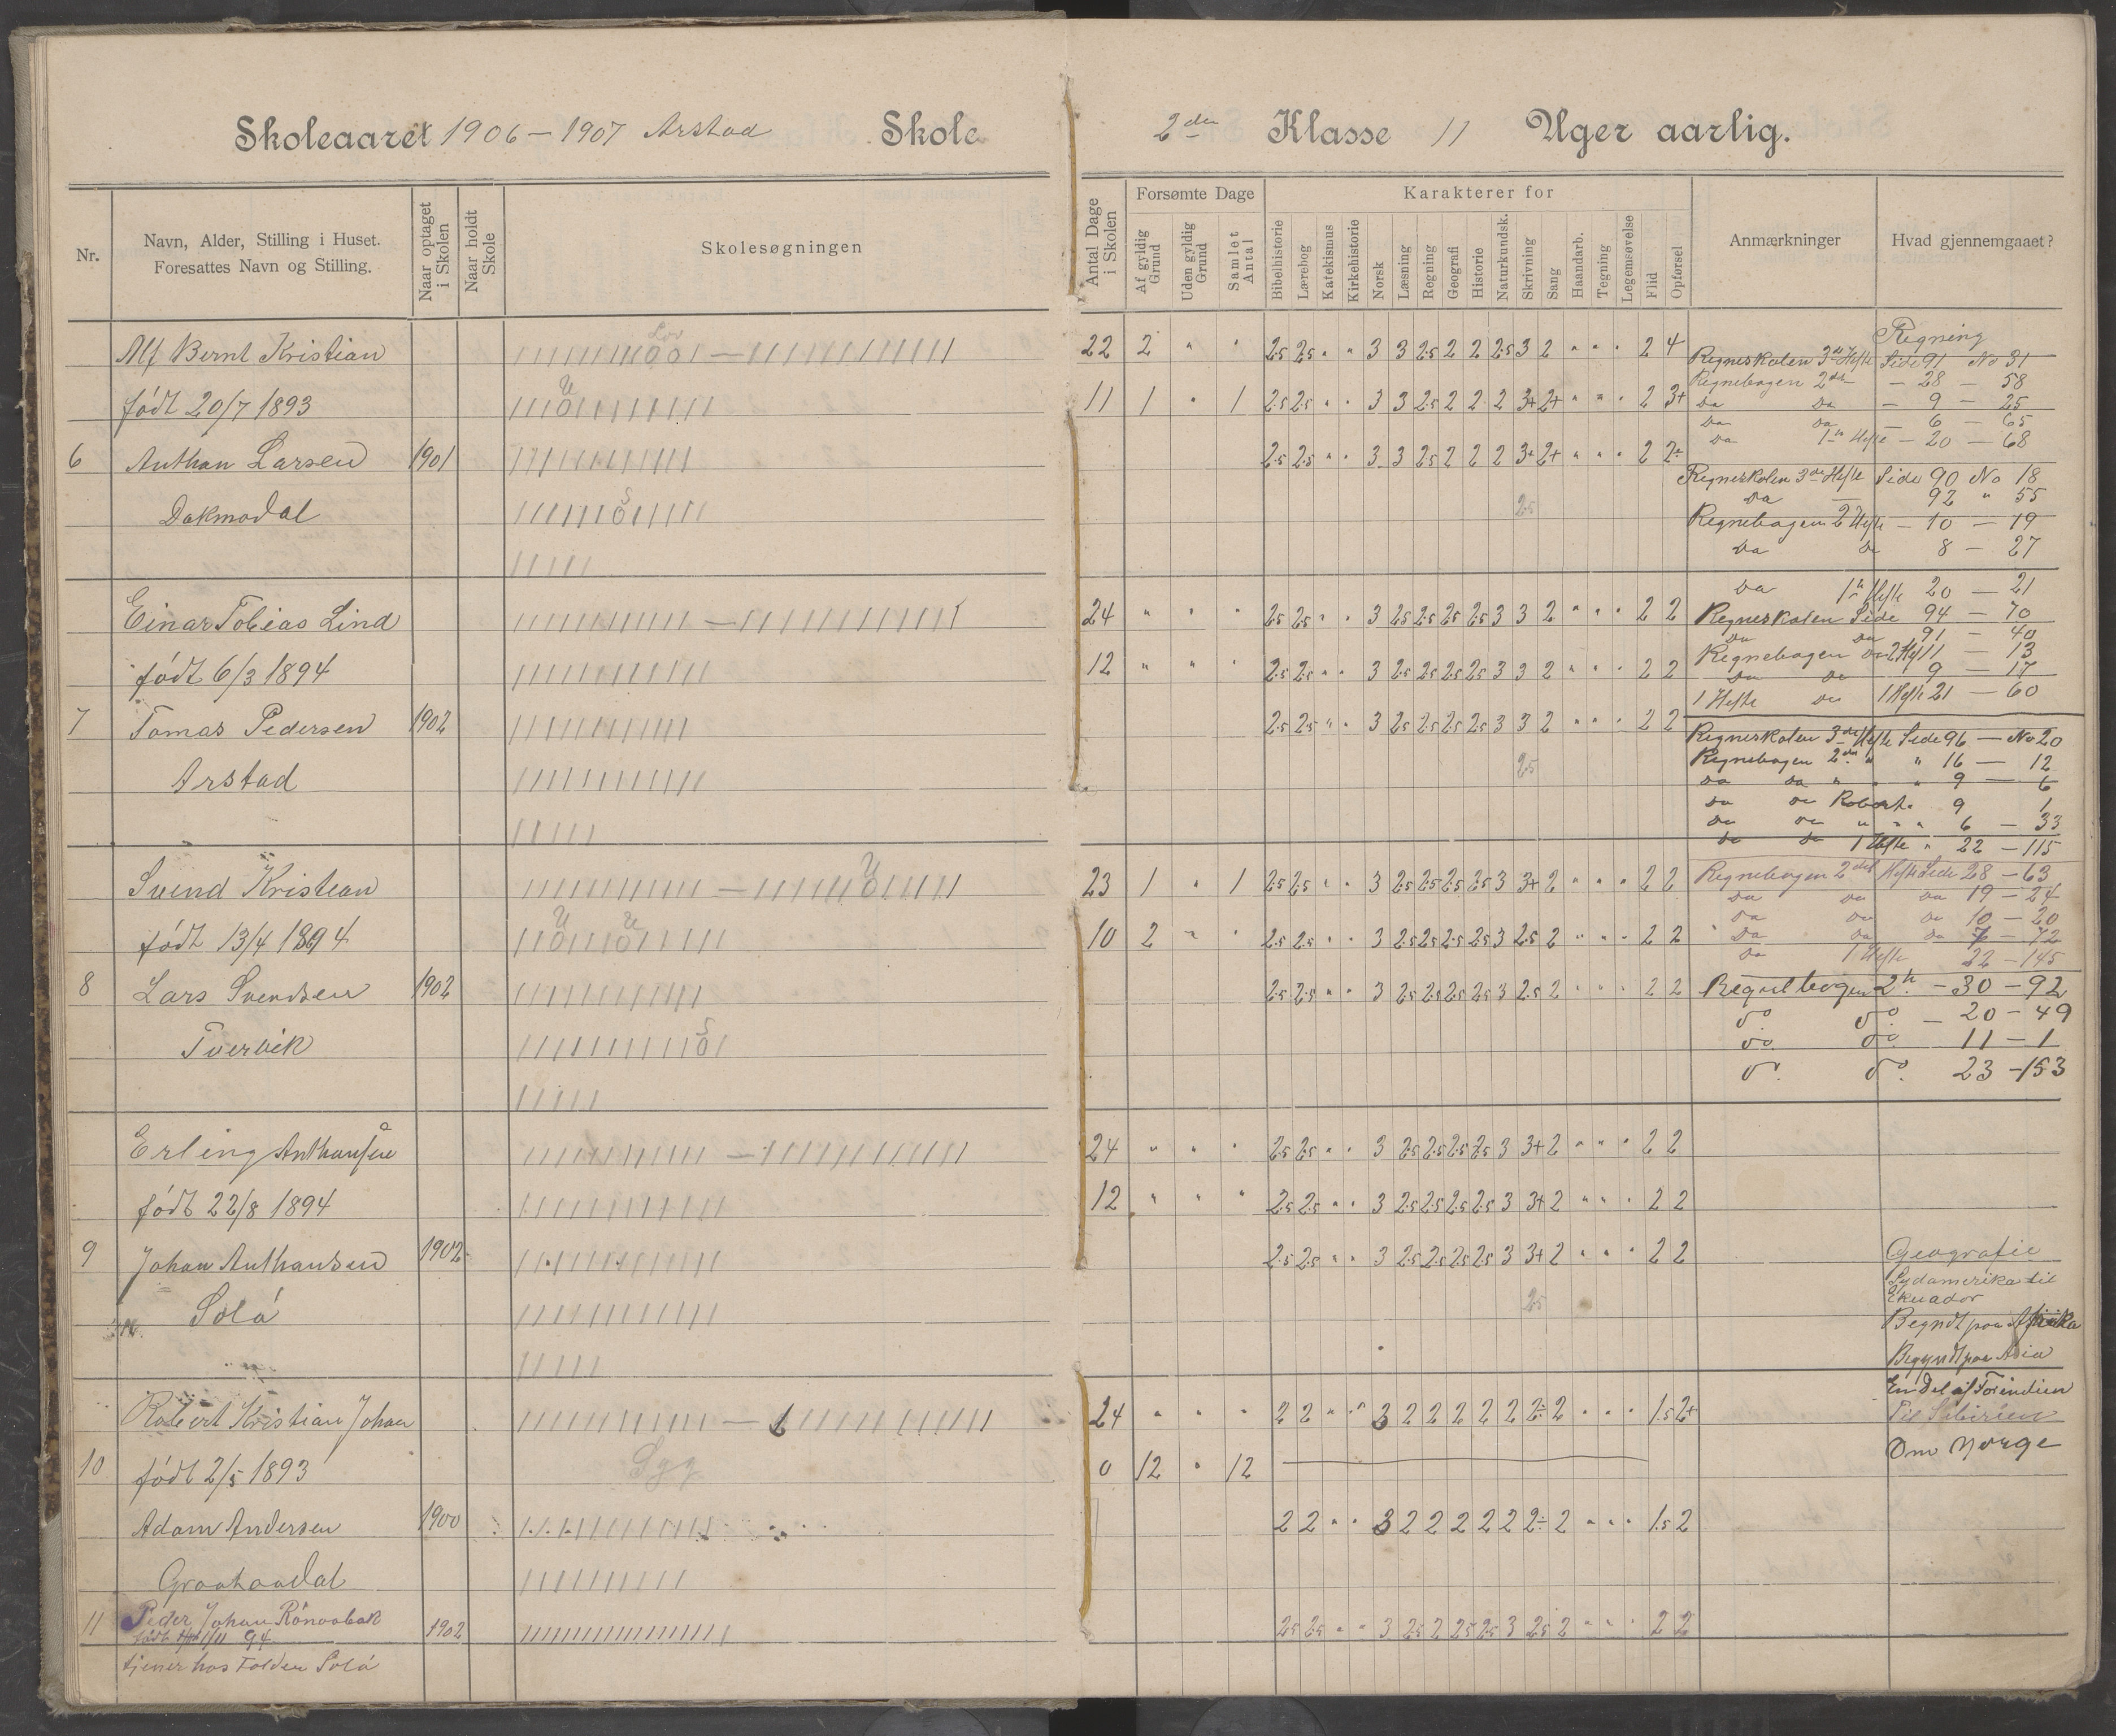 Skoleaaret 1906 – 1907 Arstad Skole
2den Klasse 11 Uger aarlig.
Nr.
Navn, Alder, Stilling i Huset.
Foresattes Navn og Stilling.
Naar optaget i Skolen
Naar holdt Skole
Skolesøgningen
Antal Dage i Skolen
Forsømte Dage
Af gyldig Grund
Uden gyldig Grund
Samlet Antal
Karakterer for
Bibelhistorie
Lærebog
Katekismus
Kirkehistorie
Norsk
Læsning
Regning
Geografi
Historie
Naturkundsk.
Skrivning
Sang
Haandarb.
Tegning
Legemsøvelse
Flid
Opførsel
Anmærkninger
Hvad gjennemgaaet?
Alf Bernt Kristian
født 20/7 1893
6 Anthon Larsen 1901
Dakmodal
22 2 " " 2.5 2.5 " " 3 3 2.5 2 2 2.5 3 2 " " " 2 4
11 1 " 1 2.5 2.5 " " 3 3 2.5 2 2 2 3+ 2+ " " " 2 3+
2.5 2.5 " " 3 3 2.5 2 2 2 3+ 2+ " " " 2 2+
2.5
Regning
Regneskolen 3die Hefte Side 91 No 31
Regnebogen 2den – 28 – 58
Do Do – 9 – 25
Do Do – 6 – 65
Do 1ste Hefte – 20 – 68
Regneskolen 3die Hefte Side 90 No 18
Do – 92 " 55
Regnebogen 2 Hefte – 10 – 19
Do Do 8 – 27
Do 1ste Hefte 20 – 21
Einar Tobias Lind
født 6/3 1894
7 Tomas Pedersen 1902
Arstad
24 " " " 2.5 2.5 " " 3 2.5 2.5 2.5 2.5 3 3 2 " " " 2 2
12 " " " 2.5 2.5 " " 3 2.5 2.5 2.5 2.5 3 3 2 " " " 2 2
2.5 2.5 " " 3 2.5 2.5 2.5 2.5 3 3 2 " " " 2 2
2.5
Regneskolen Side 94 – 70
Do Do 91 – 40
Regnebogen 2 Hefte 11 – 13
Do Do 9 – 17
1 Hefte Do 1 Hefte 21 – 60
Regneskolen 3die Hefte Side 96 – No 20
Regnebogen 2den " " 16 – 12
Do Do " " " 9 – 6
Do Do Robert. 9 1
Do Do " " " 6 – 33
Do Do 1 Hefte " 22 – 115
Svend Kristian
født 13/4 1894
8 Lars Svendsen 1902
Tvervik
23 1 " 1 2.5 2.5 " " 3 2.5 2.5 2.5 2.5 3 3+ 2 " " " 2 2
10 2 " " 2.5 2.5 " " 3 2.5 2.5 2.5 2.5 3 2.5 2 " " " 2 2
2.5 2.5 " " 3 2.5 2.5 2.5 2.5 3 2.5 2 " " " 2 2
Regnebogen 2det Hefte Side 28 – 63
Do Do Do 19 – 24
Do Do Do 10 – 20
" Do Do Do 7 – 72
Do 1 Hefte 22 – 145
Regnebogen 2 h. – 30 – 92
do. do. – 20 – 49
do. do. 11 – 1
do. do. 23 – 153
Erling Anthansen
født 22/8 1894
9 Johan Anthansen 1902
Solå
24 " " " 2.5 2.5 " " 3 2.5 2.5 2.5 2.5 3 3+ 2 " " " 2 2
12 " " " 2.5 2.5 " " 3 2.5 2.5 2.5 2.5 3 3+ 2 " " " 2 2
2.5 2.5 " " 3 2.5 2.5 2.5 2.5 3 3+ 2 " " " 2 2
2.5
Geografie
Sydamerika til
Ekuador
Begndt paa Afrika
Begyndt paa Asia
En Del af Forindien
Til Sibirien
Om Norge
Robert Kristian Johan
10 født 2/5 1893
Syg
Adam Andersen 1900
24 " " " 2 2 " " 3 2 2 2 2 2 2÷ 2 " " " 1.5 2+
0 12 " 12
2 2 " " 3 2 2 2 2 2 2÷ 2 " " " 1.5 2
11 Peder Johan 1902
født 1/11 94
tjener hos Solå
2.5 2.5 " " 3 2.5 2 2.5 2.5 3 2.5 2 " " " 2 2